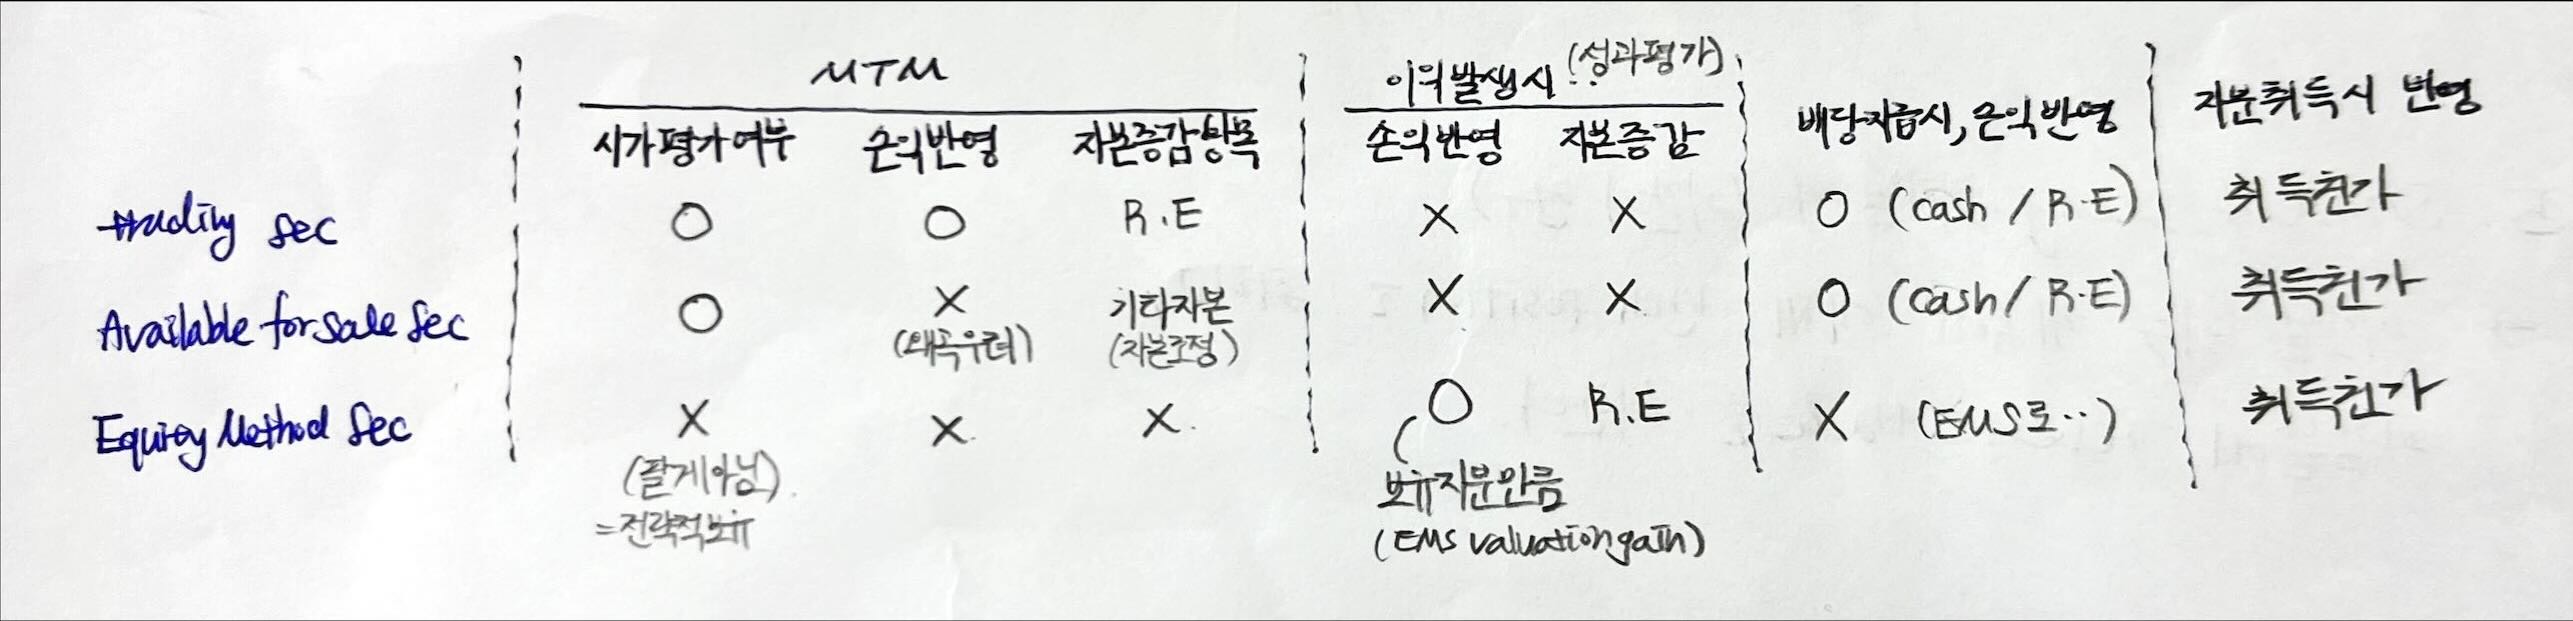 MTM 이익발생시 (성과평가)
시가평가여부 손익반영 자본증감항목 손익반영 자본증감 배당지급시, 손익반영 지분취득시 반영
trading sec O O R.E X X O (cash / R.E) 취득원가
Available for sale sec O X 기타자본 X X O (cash / R.E) 취득원가
(왜곡우려) (자본조정)
Equity Method sec X X X O R.E X (EMS로..) 취득원가
(팔게아님) 보유지분만큼
=전략적보유 (EMS valuation gain)